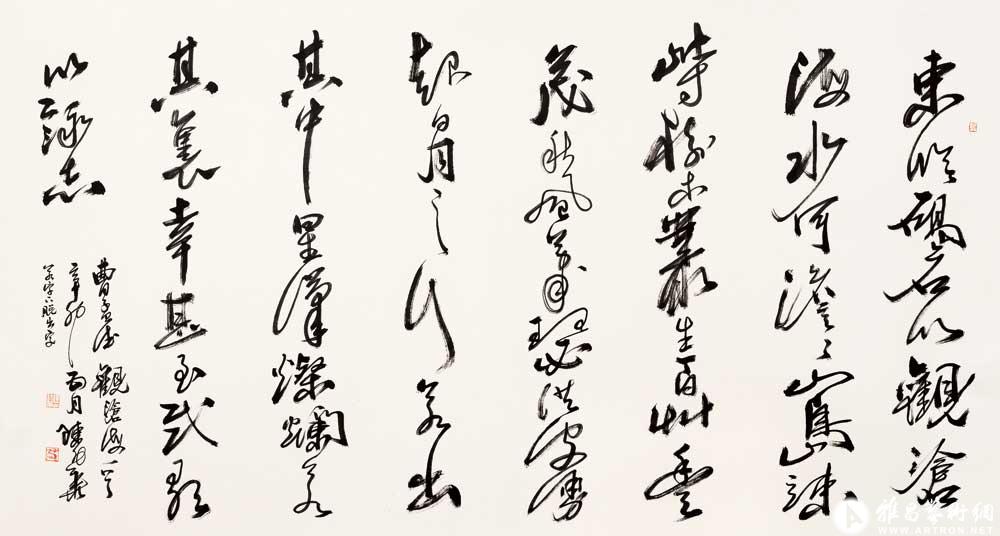 東臨碣石以觀滄
海水何澹〻山島竦
峙樹木叢生百草豐
茂秋風蕭瑟洪波湧
起日月之行若出
其中星漢燦爛若
其裏幸甚至哉歌
以詠志
曹孟德觀滄海一首
辛卯 月陳
若字下脫出字
雅昌藝術網
WWW.ARTRON.NET